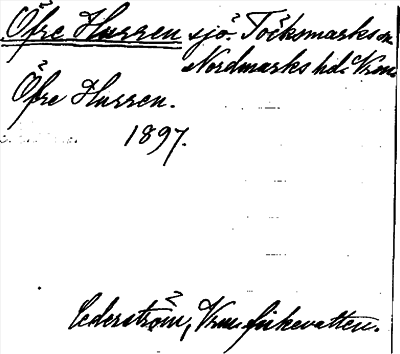 Öfre Hurren sjö. Töcksmarks sn
Nordmarks hd. Vrm.
Öfre Hurren.
1897.
Cederström, Vrm. fiskevatten.